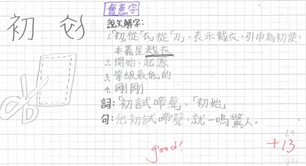 初
會意字
說文解字:
1.初從「衣」從「刀」,表示裁衣,引申為初始,
本義是裁衣
2.開始、起源
3.等級最低的
4.剛剛
詞:「初試啼聲」「初始」
句:他初試啼聲,就一鳴驚人。
good!
+13